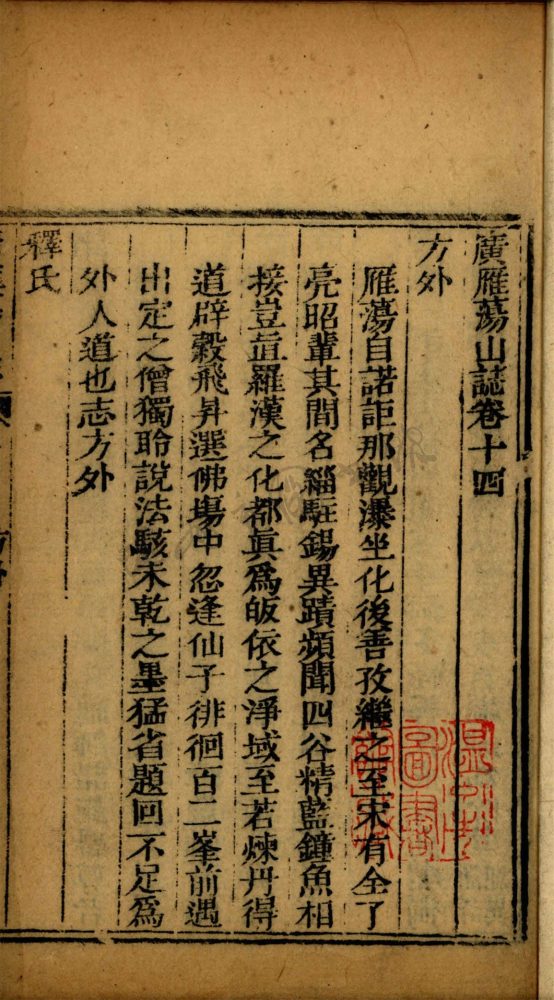 廣雁蕩山誌卷十四
方外
雁蕩自諾詎那觀瀑坐化後善孜繼之至宋有全了
亮昭輩其間名緇駐錫異蹟頻聞四谷精藍鐘魚相
接豈啻羅漢之化都眞爲皈依之淨域至若煉丹得
道辟穀飛昇選佛塲中忽逢仙子徘徊百二峯前遇
出定之僧獨聆說法駭未乾之墨猛省題回一不足爲
外人道也志方外
釋氏